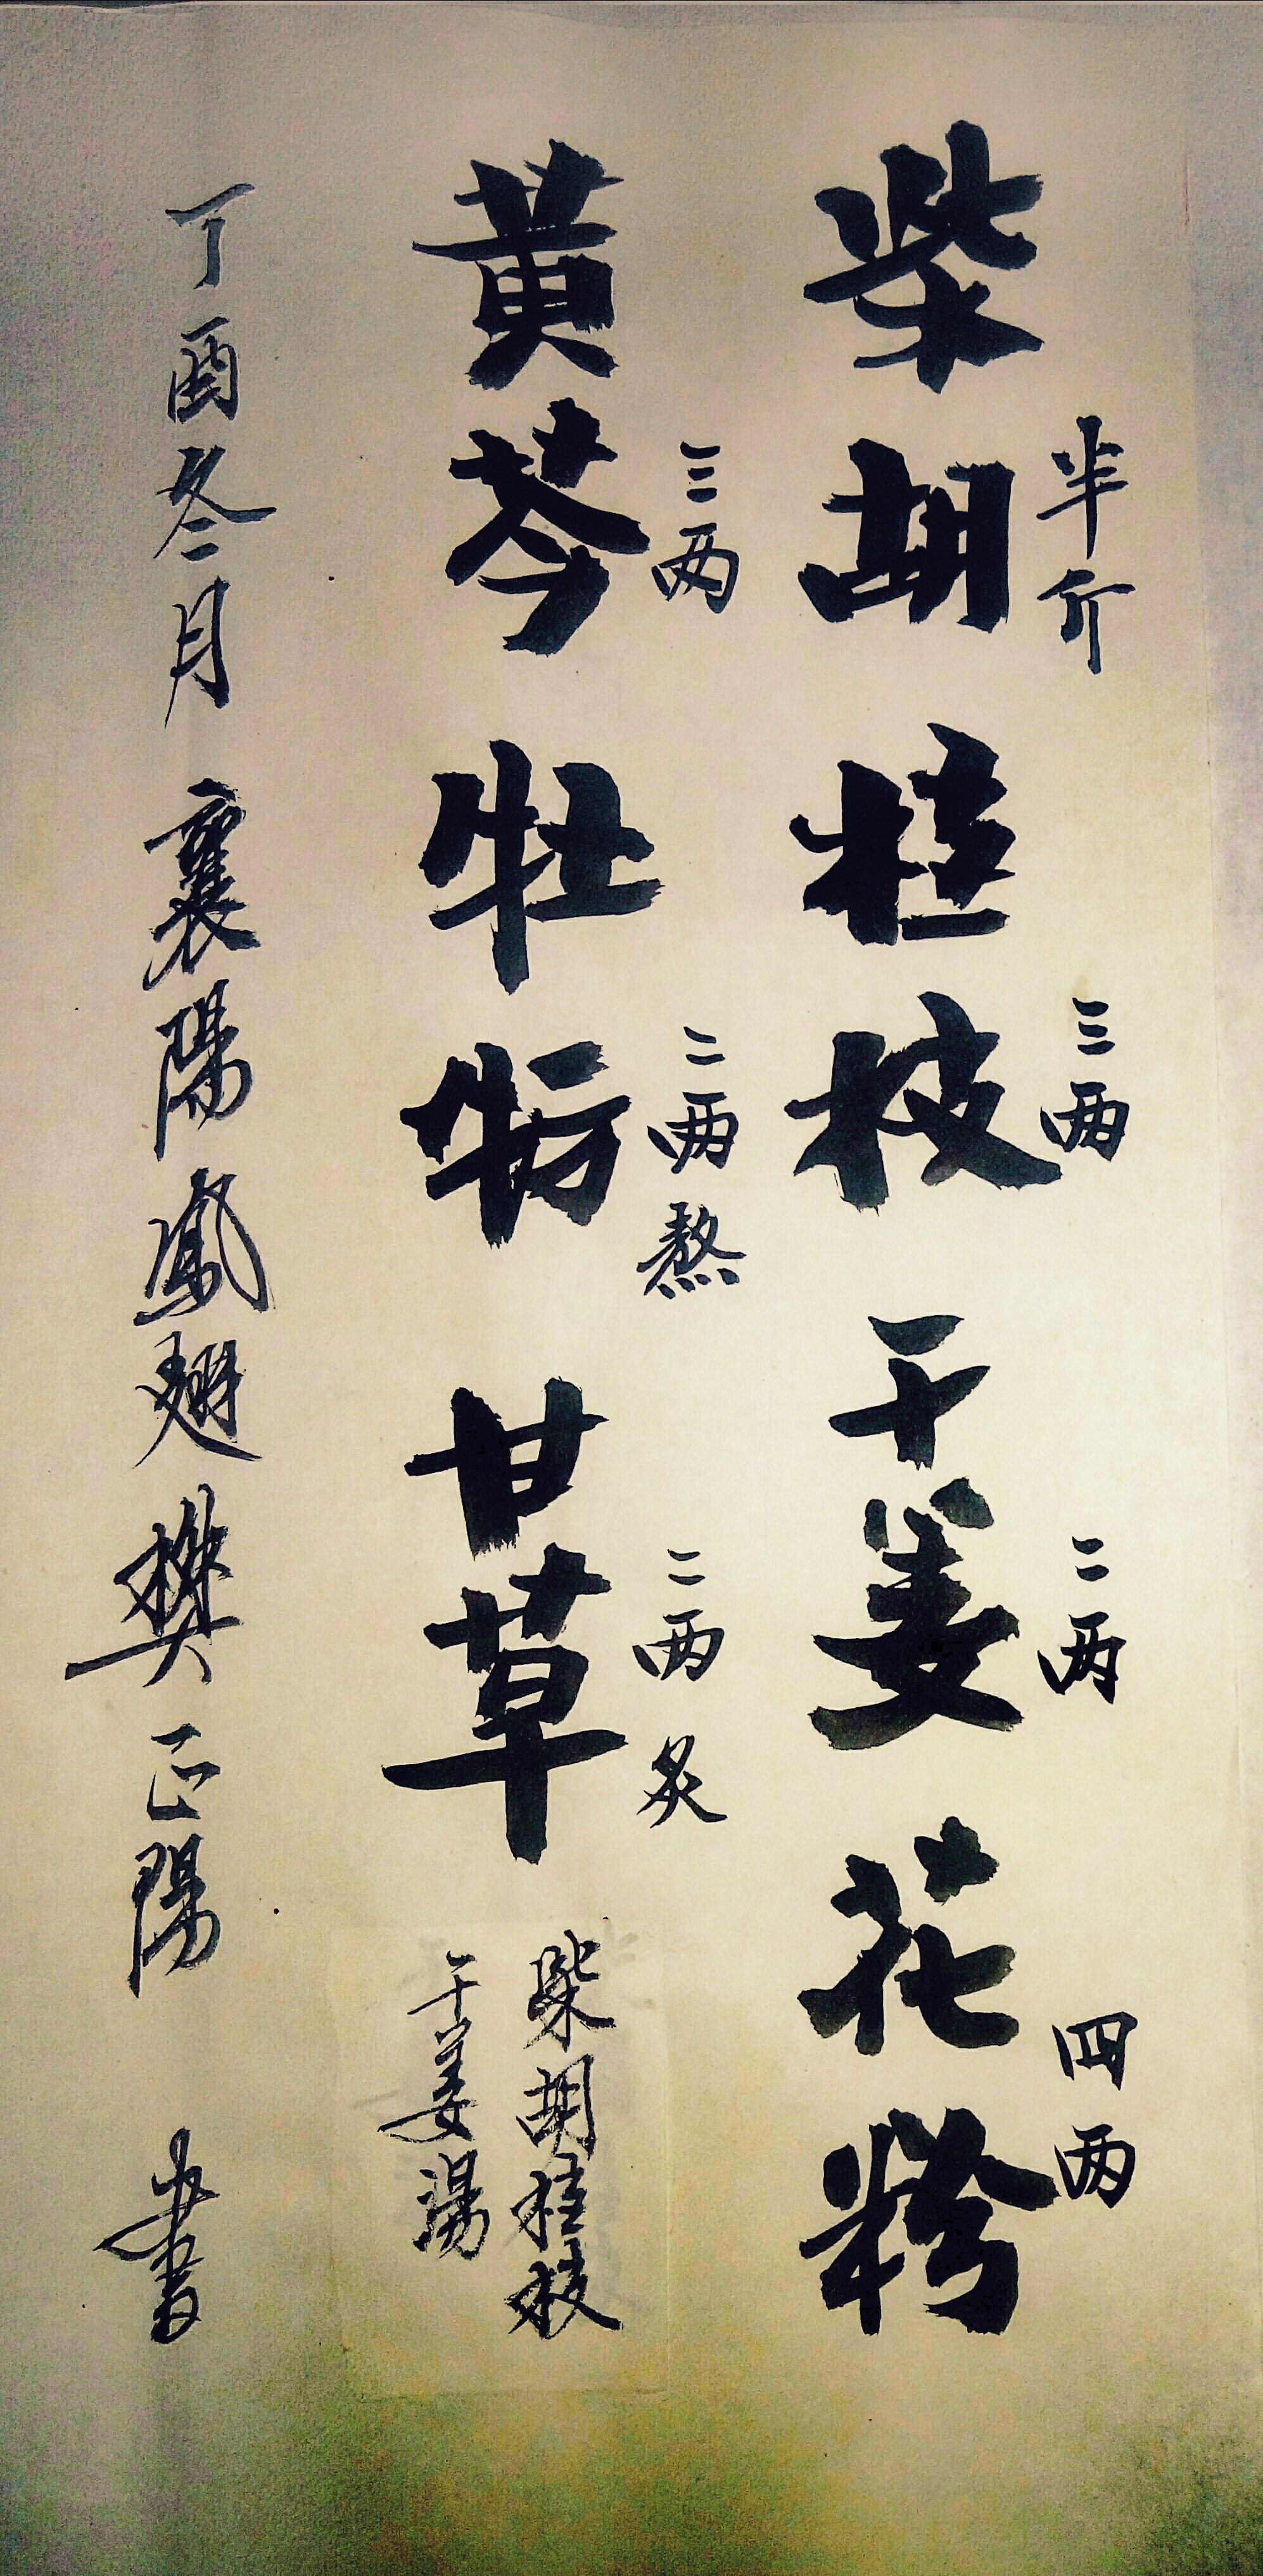 柴胡 半斤 桂枝 三两 干姜 二两 花粉 四两
黄芩 三两 牡蛎 二两熬 甘草 二两炙
柴胡桂枝
干姜湯
丁酉冬月 襄陽鳳翅樊正陽 書